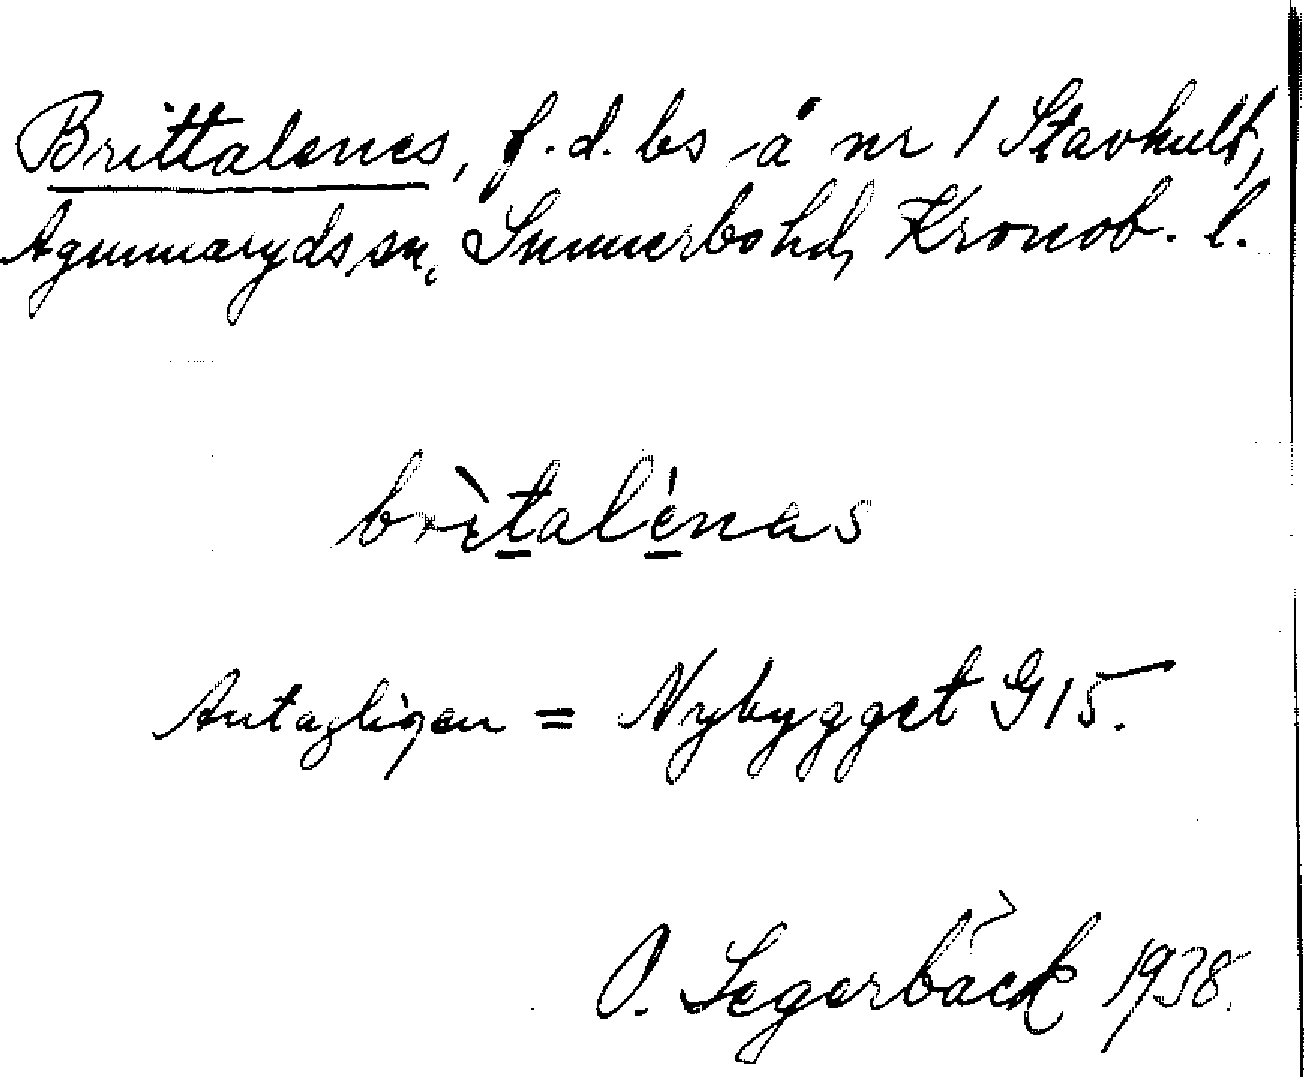 Brittalenes, f.d. bs å nr 1 Stavhult,
Agunnaryds sn, Sunnerbo hd, Kronob. l.
brìtalénas
Antagligen = Nybygget G15.
O. Segerbäck 1938.